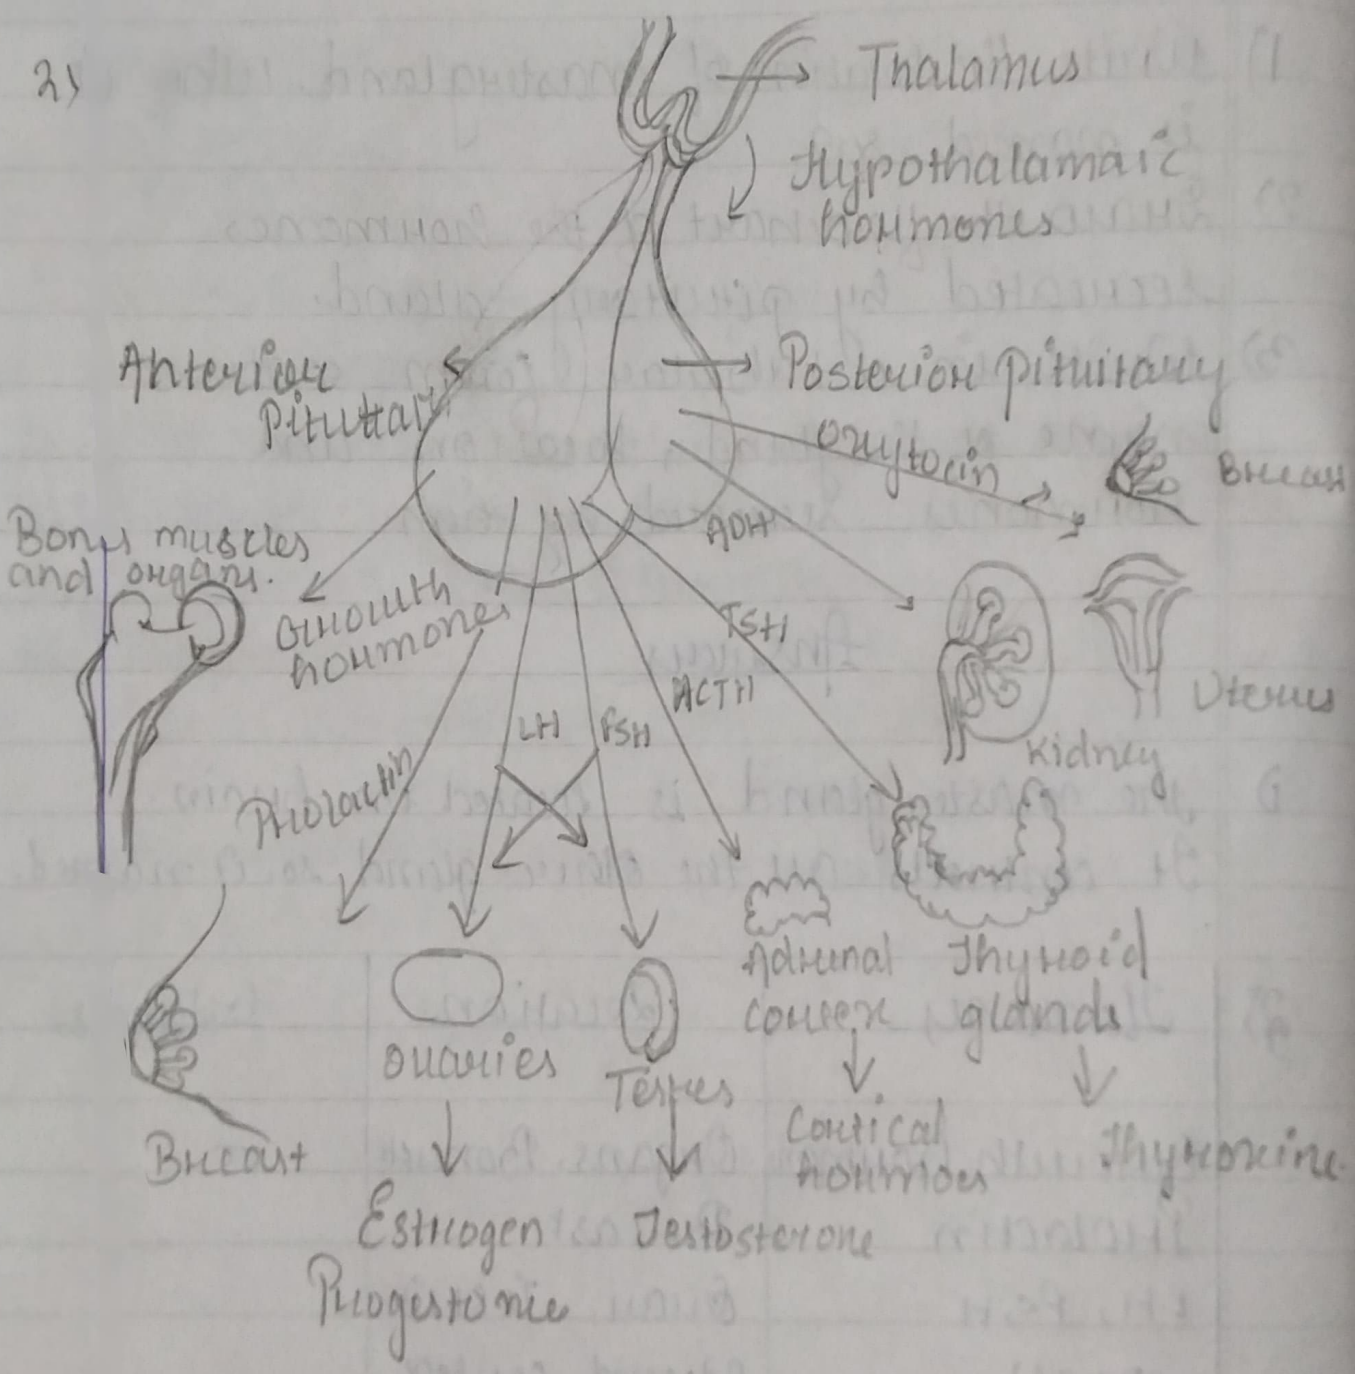 2)
Thalamus
Hypothalamaic
hormones
Anterior
Pituttary
Posterior pituitary
oxytocin
Breast
ADH
Bonys muscles
and organs.
Growth
hormones
TSH
ACTH
LH
FSH
Prolactin
Uterus
Kidney
Adrenal
cortex
Thyroid
glands
ovaries
Testes
Breast
Cortical
hormoes
Thyroxine
Estrogen
Testosterone
Progestonie